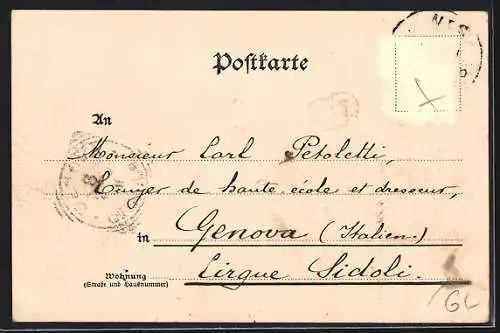 NIS
Postkarte
An
Monsieur Carl Petoletti,
de haute école et dresseur,
in Genova (Italien.)
Cirque Sidoli.
Wohnung
(Straße und Hausnummer)
GL